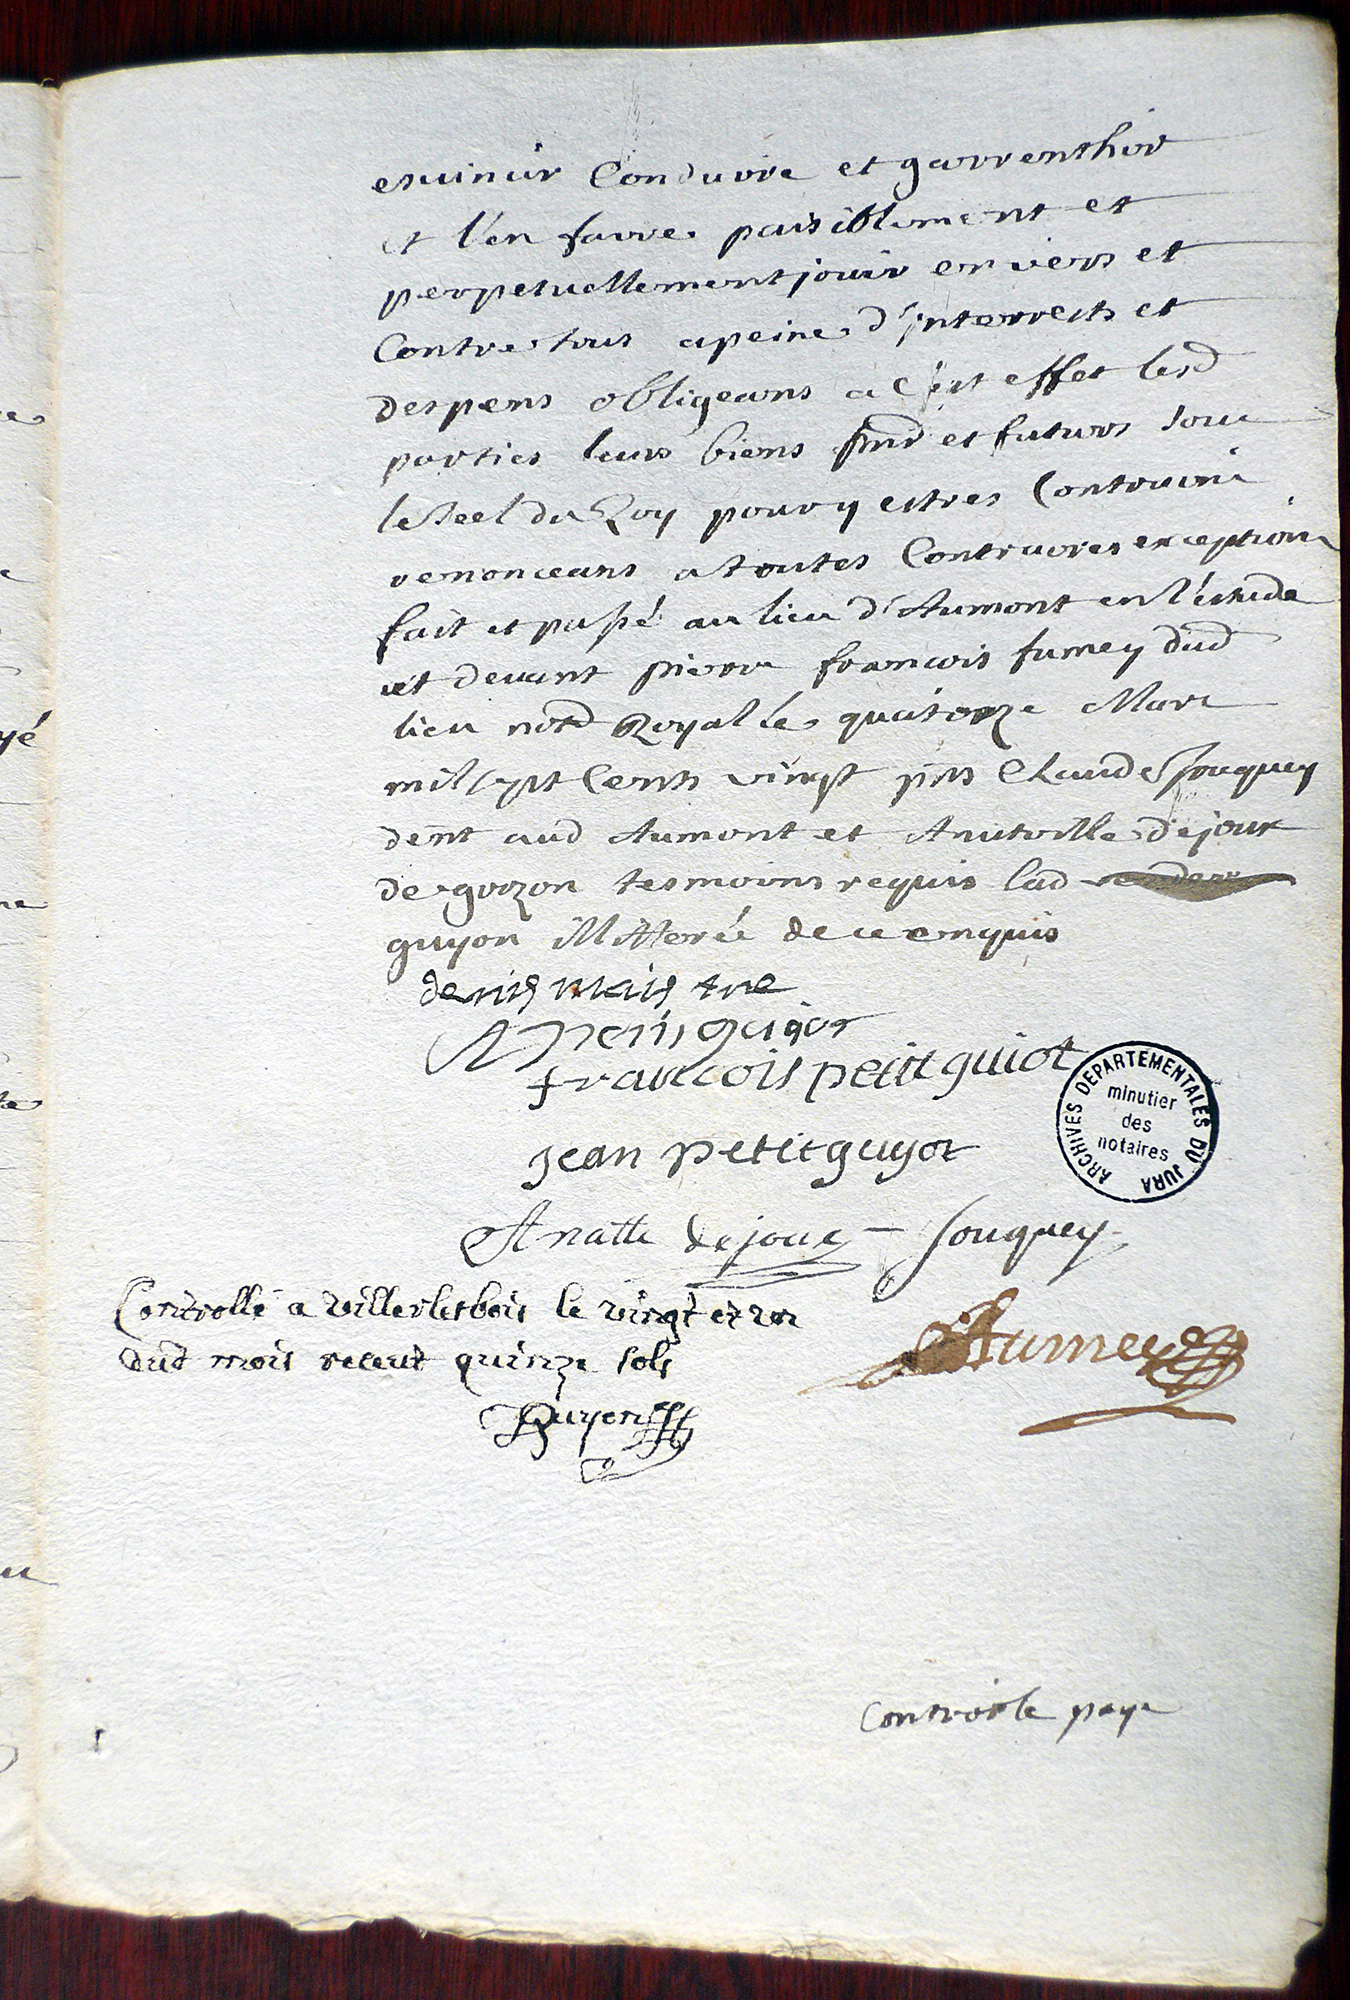 esvinür Conduire et garrenthir
et l'en faire paisiblement et
perpetuellement jouir envers et
Contre tous a peine d'jnterrests et
despens obligeans a c'est effet lesd
parties leurs biens pnts et futurs sous
le seel du Roy pour y estres Contraint
renonceans a toutes Contraires exceptions
fait et passé au lieu d'Aumont en l'estude
et devant pierre francois fumey dud
lieu notd Royal le quatorze Mars
mil sept Cents vingt pns Claude Jouquey
demt aud Aumont et Anatoille dejoux
de grozon tesmoins requis lad
guyon illitterée de ce enquis
denis maistre
A petisguior
francois petit guiot
jean petitguyot
Anatte dejoux Jouquey
fumey
Controllé a villerlesbois le vingt et un
dud mois receut quinze sols
Guyenet
ARCHIVES DEPARTEMENTALES DU JURA
minutier
des
notaires
Controlle paye